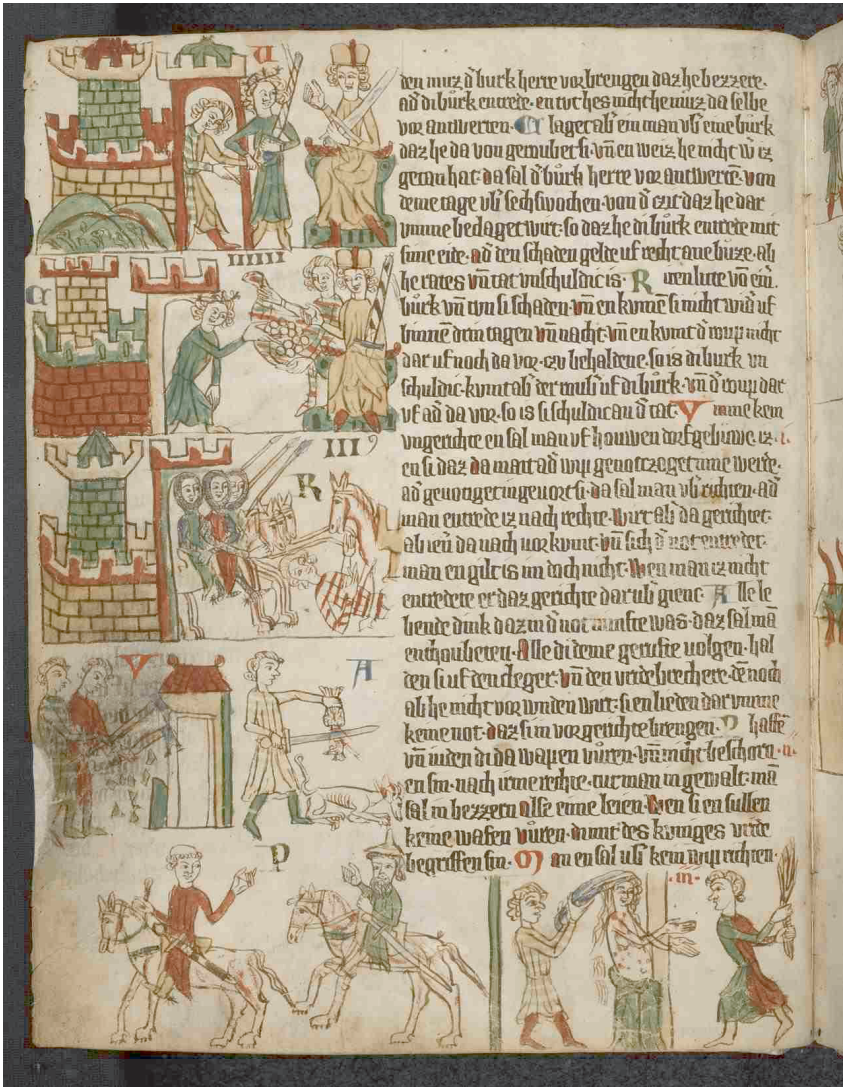 den muz d' burk herre vor brengen daz he bezzere.
ad' di burk entrede. en tut hes nicht he muz da selbe
vor antwerten. Claget ab' ein man ub' eine burk
daz he da von geroubet si. vn̄ en weiz he nicht w' iz
getan hat. da sal d' burk herre vor antwertē. von
deme tage ub' sechs wochen. von d' czit daz he dar
umme bedaget wirt. so daz he di burk entrede mit
sime eide. ad' den schaden gelde uf recht ane buze. ab
he rates vn̄ tat unschuldic is. Riten lute vō eīn'
burk vn̄ tun si schaden. vn̄ en kumē si nicht wid' uf
binnē drin tagen vn̄ nacht. vn̄ en kumt d' roup nicht
dar uf noch da vor. czu behaldene. so is di burk un
schuldic. kumt ab' der roub uf di burk. vn̄ d' roup dar
uf ad' da vor. so is si schuldic an d' tat. Umme kein
ungerichte en sal man uf houwen dorf gebuwe. iz .i.
en si daz da mait ad' wip genotczoget inne werde.
ad' genotiget in gevort si. da sal man ub' richten. ad'
man entrede iz nach rechte. wirt ab' da gerichtet.
ab ienr' da nach vor kumt. vn̄ sich d' not entredet.
man en gilt is im doch nicht. Wen man iz nicht
entredete er daz gerichte dar ub' gienc. Alle le
bende dink daz in d' not nunfte was. daz sal mā
enthoubeten. Alle di deme gerufte volgen. hal
den si uf den cleger. vn̄ den vrde brechere. dēnoch
ab he nicht vor wnden wirt. si en liden dar umme
keine not. daz si in vor gerichte brengen. Phaffē
vn̄ iuden di da wapen vůren. vn̄ nicht beschorn .ii.
en sin. nach irme rechte. tut man in gewalt. man
sal in bezzern alse eime leien. Wen si en sullen
keine wafen vůren. di mit des kuniges vrde
begriffen sin. Man en sal ub' kein wip richten.
.iii.
C
IIIIII
C
III9
R
V
A
P